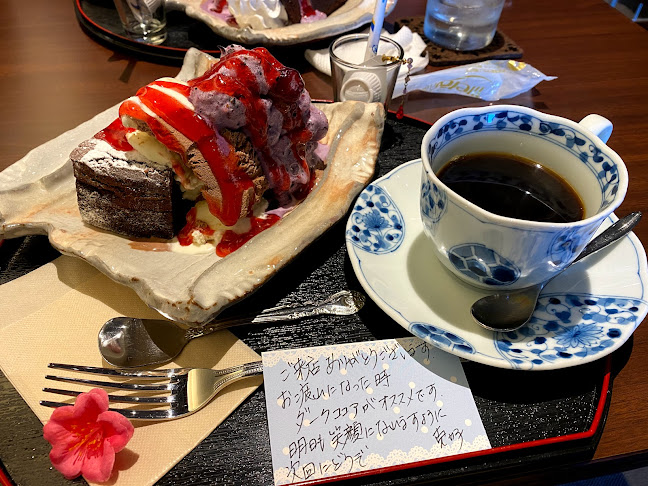 ご来店ありがとうございます
お渡しになった時
ダークココアがオススメです
明日も笑顔になりますように
次回にどうぞ